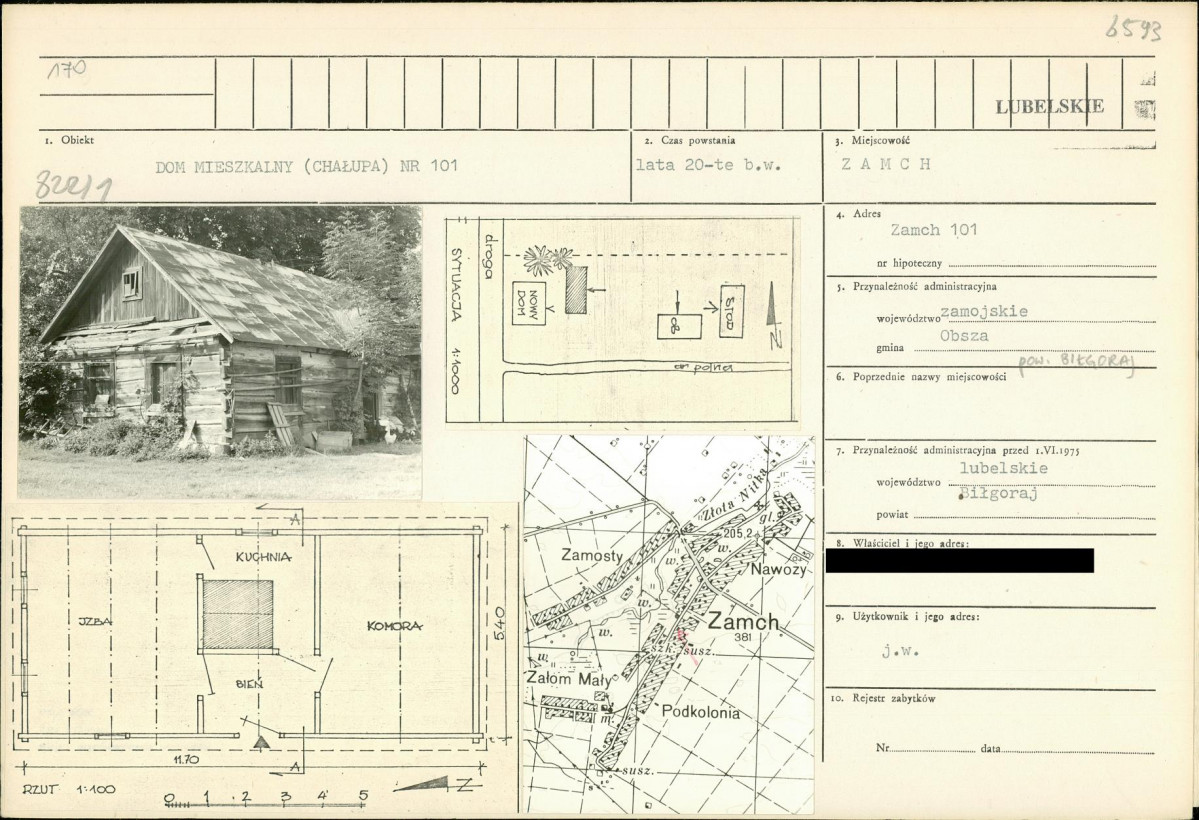 6593
170
LUBELSKIE
1. Obiekt
DOM MIESZKALNY (CHAŁUPA) NR 101
822/1
2. Czas powstania
lata 20-te b.w.
3. Miejscowość
Z A M C H
4. Adres
Zamch 101
nr hipoteczny
5. Przynależność administracyjna
województwo zamojskie
gmina Obsza
pow. BIŁGORAJ
6. Poprzednie nazwy miejscowości
7. Przynależność administracyjna przed 1.VI.1975
województwo lubelskie
powiat Biłgoraj
8. Właściciel i jego adres:
9. Użytkownik i jego adres:
j.w.
10. Rejestr zabytków
Nr data
SYTUACJA 1:1000
droga
NOWY DOM
OB
STOD
polna
N
Złota Nitka
gl.
205,2
w.
Zamosty
Nawozy
w.
w.
w.
w.
Zamch
381
szk. susz.
Załom Mały
m.
Podkolonia
susz.
A
KUCHNIA
IZBA
KOMORA
BIEŃ
540
11.70
A
RZUT 1:100
0 1 2 3 4 5
N